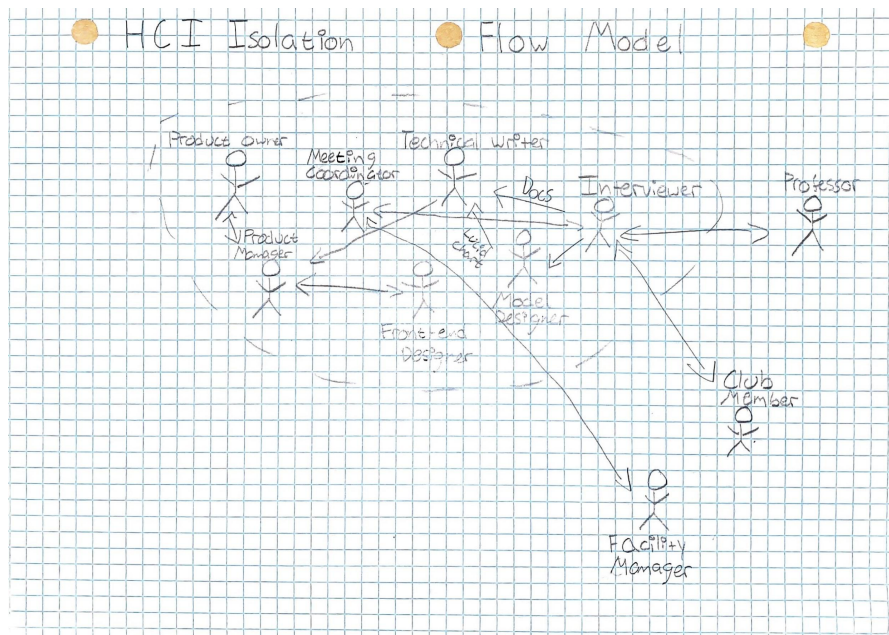 HCI Isolation Flow Model
Product Owner
Meeting
Coordinator
Technical Writer
Docs
Interviewer
Professor
Product
Manager
Lucid
chart
Model
Designer
Front-end
Designer
Club
Member
Facility
Manager